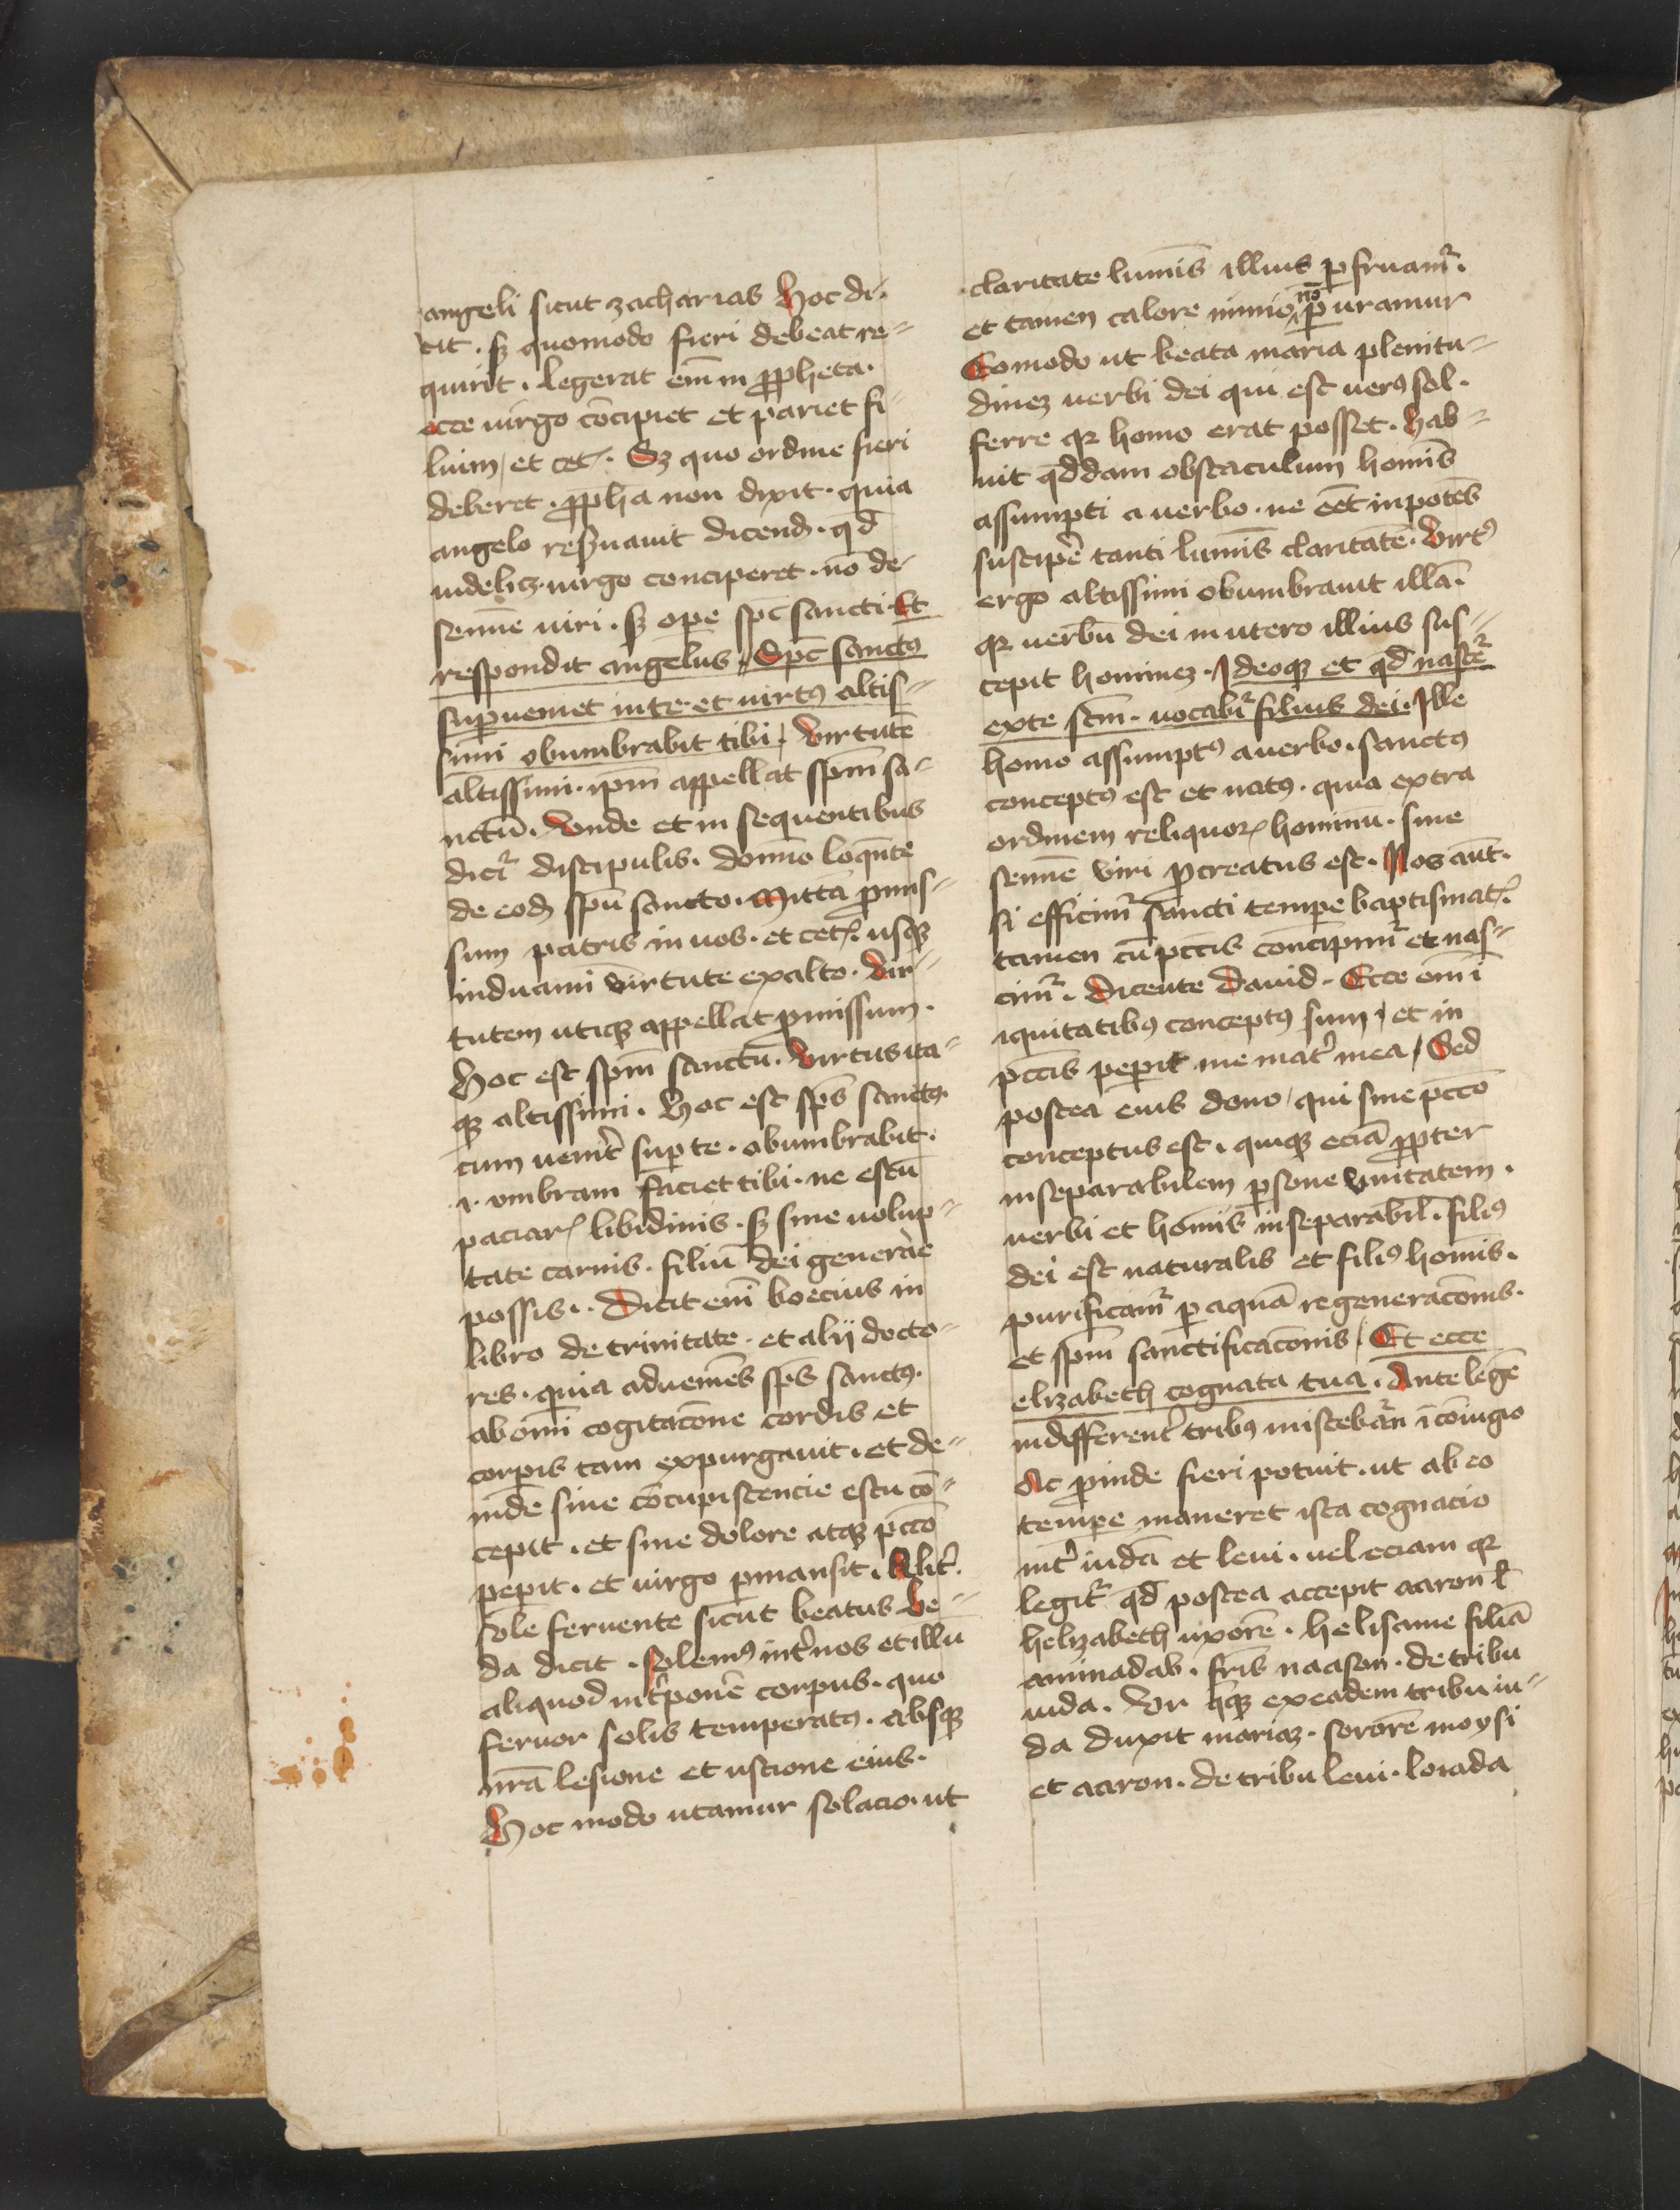 angeli sicut zacharias Hoc di-
cit . sꝫ quomodo fieri debeat re-
quirit . legerat em̄ in ꝓpheta .
ecce virgo concipiet et pariet fi-
lium / et cet̛ . Sꝫ quo ordine fieri
deberet . ꝓph̄a non dixit . quia
angelo res̛uauit dicend̛ . qd̄
videlicꝫ . virgo conciperet . nō de
semīe viri . sꝫ ope spc̄ sancti . Et
respondit angelus . Spc̄ sanctꝰ
suꝑueniet in te . et virtꝰ altis-
simi obumbrabit tibi / Virtutē
altissimi . ip̄m appellat spm̄ sa-
nctū . Vnde et in sequentibus
dicit̛ discipulis . domīo loqn̄te
de eod̛ spū sancto . Mittā ꝓmis-
sum patris in vos . et cet̛ . usqꝫ
induami virtute ex alto . Vir-
tutem utiqꝫ appellat ꝓmissum .
Hoc est spm̄ sanctū . Virtus ita-
qꝫ altissimi . Hoc est sps̄ sanctꝰ
cum venit̛ suꝑ te . obumbrabit .
.i. vmbram faciet tibi . ne estū
paciar̛ libidinis . sꝫ sine volup-
tate carnis . filiū dei generare
possis . Dicit em̄ boecius in
libro de trinitate . et alij docto-
res . quia adueniēs sps̄ sanctꝰ .
ab om̄i cogitacōne cordis et
corpis tam expurgauit . et de-
inde sine cōcupiscencie estu cō-
cepit . et sine dolore atqꝫ pcc̄o
peperit . et virgo ꝑmansit . Alit̛
sole feruente sicut beatus be-
da dicit . solemꝰ int̛ nos et illū
aliquod int̛ponē corpus . quo
feruor solis temperatꝰ . absqꝫ
nrā lesione et ustione eius .
Hoc modo utamur solacio . ut
claritate lumīs illius ꝑfruam̛ .
et tamen calore nimio nō ꝑuramur
Eo modo ut beata maria plenitu-
dinēꝫ verbi dei qui est verꝰ sol .
ferre qꝛ homo erat posset . hab-
uit qd̄dam obstaculum homīs
assumpti a verbo . ne eēt inpotēs
suscipe̛ tanti lumīs claritatē . Virtꝰ
ergo altissimi obumbrauit illā .
qꝛ verbū dei in utero illius sus-
cepit hominēꝫ . Ideoqꝫ et qd̄ nascet̛
ex te scm̄ . vocabit̛ filius dei . Ille
homo assumptꝰ a verbo . sanctꝰ
conceptꝰ est et natꝰ . quia extra
ordinem reliquoꝝ hominū . sine
semīe viri ꝓcreatus est . Nos aūt .
si efficim̛ sancti tempe baptismat̛
tamen cū pcc̄is concipim̛ et nas-
cim̛ . dicente dauid . Ecce em̄ i
iquitatibꝰ conceptꝰ sum / et in
pcc̄is peperit me mat̛ mea / Sed
postea eius dono / qui sine pcc̄o
conceptus est . quiqꝫ eciā ꝓpter
inseparabilem ꝑsone vnitatem .
verbi et homīs inseparabil̄ . filiꝰ
dei est naturalis et filiꝰ homīs .
purificam̛ ꝑ aquā regeneracōnis .
et spm̄ sanctificacōnis / Et ecce
elizabeth cognata tua . Ante legē
indifferent̛ tribꝰ miscebāt̛ i cōiugio
Ac ꝓinde fieri potuit . ut ab eo
tempe maneret ista cognacio
int̛ iudā et leui . vel eciam qꝛ
legit̛ qd̄ postea accepit aaron l̄
helizabeth uxorē . helisame filiā
aminadab . fr̄is naason . de tribu
iuda . Vr hꝰqꝫ ex eadem tribu iu-
da duxit mariāꝫ . sororē moysi
et aaron . de tribu leui . Ioiada